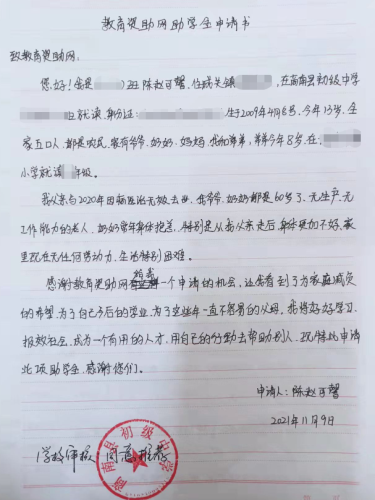 教育资助网助学金申请书
致教育资助网：
您好！我是 班 陈赵可馨，住城关镇 ，在商南县初级中学
就读，身份证： 生于2009年4月6号，今年13岁，全
家五口人，都是农民，家有爷爷、奶奶、妈妈、我和弟弟，弟弟今年8岁，在
小学就读 年级。
我父亲与2020年因病医治无效去世，我爷爷、奶奶都是60岁了，无生产、无
工作能力的老人，奶奶常年身体抱恙，特别是从我父亲走后，身体更加不好，家
里现在无任何劳动力，生活特别困难。
感谢教育资助网给我一个申请的机会，让我看到了为家庭减负
的希望，为了自己今后的学业，为了这些年一直不容易的父母，我将好好学习，
报效社会，成为一个有用的人才，用自己的行动去帮助别人，现特此申请
此项助学金，感谢你们。
申请人：陈赵可馨
2021年11月9日
学校审核 同意推荐
商南县初级中学